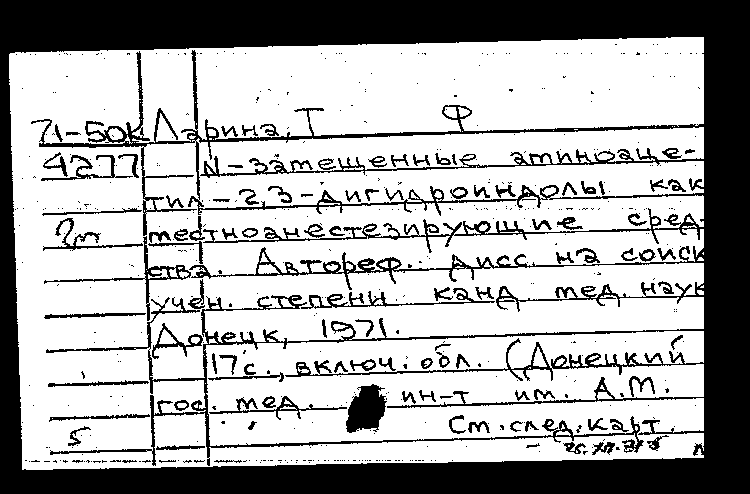 71-50К Ларина, Т Ф
4277 N-замещенные аминоаце-
тил-2,3-дигидроиндолы как
местноанестезирующие сред-
ства. Автореф. дисс. на соиск
учен. степени канд мед. наук
Донецк, 1971.
17с., включ. обл. (Донецкий
гос. мед. ин-т им. А.М.
5 См. след. карт.